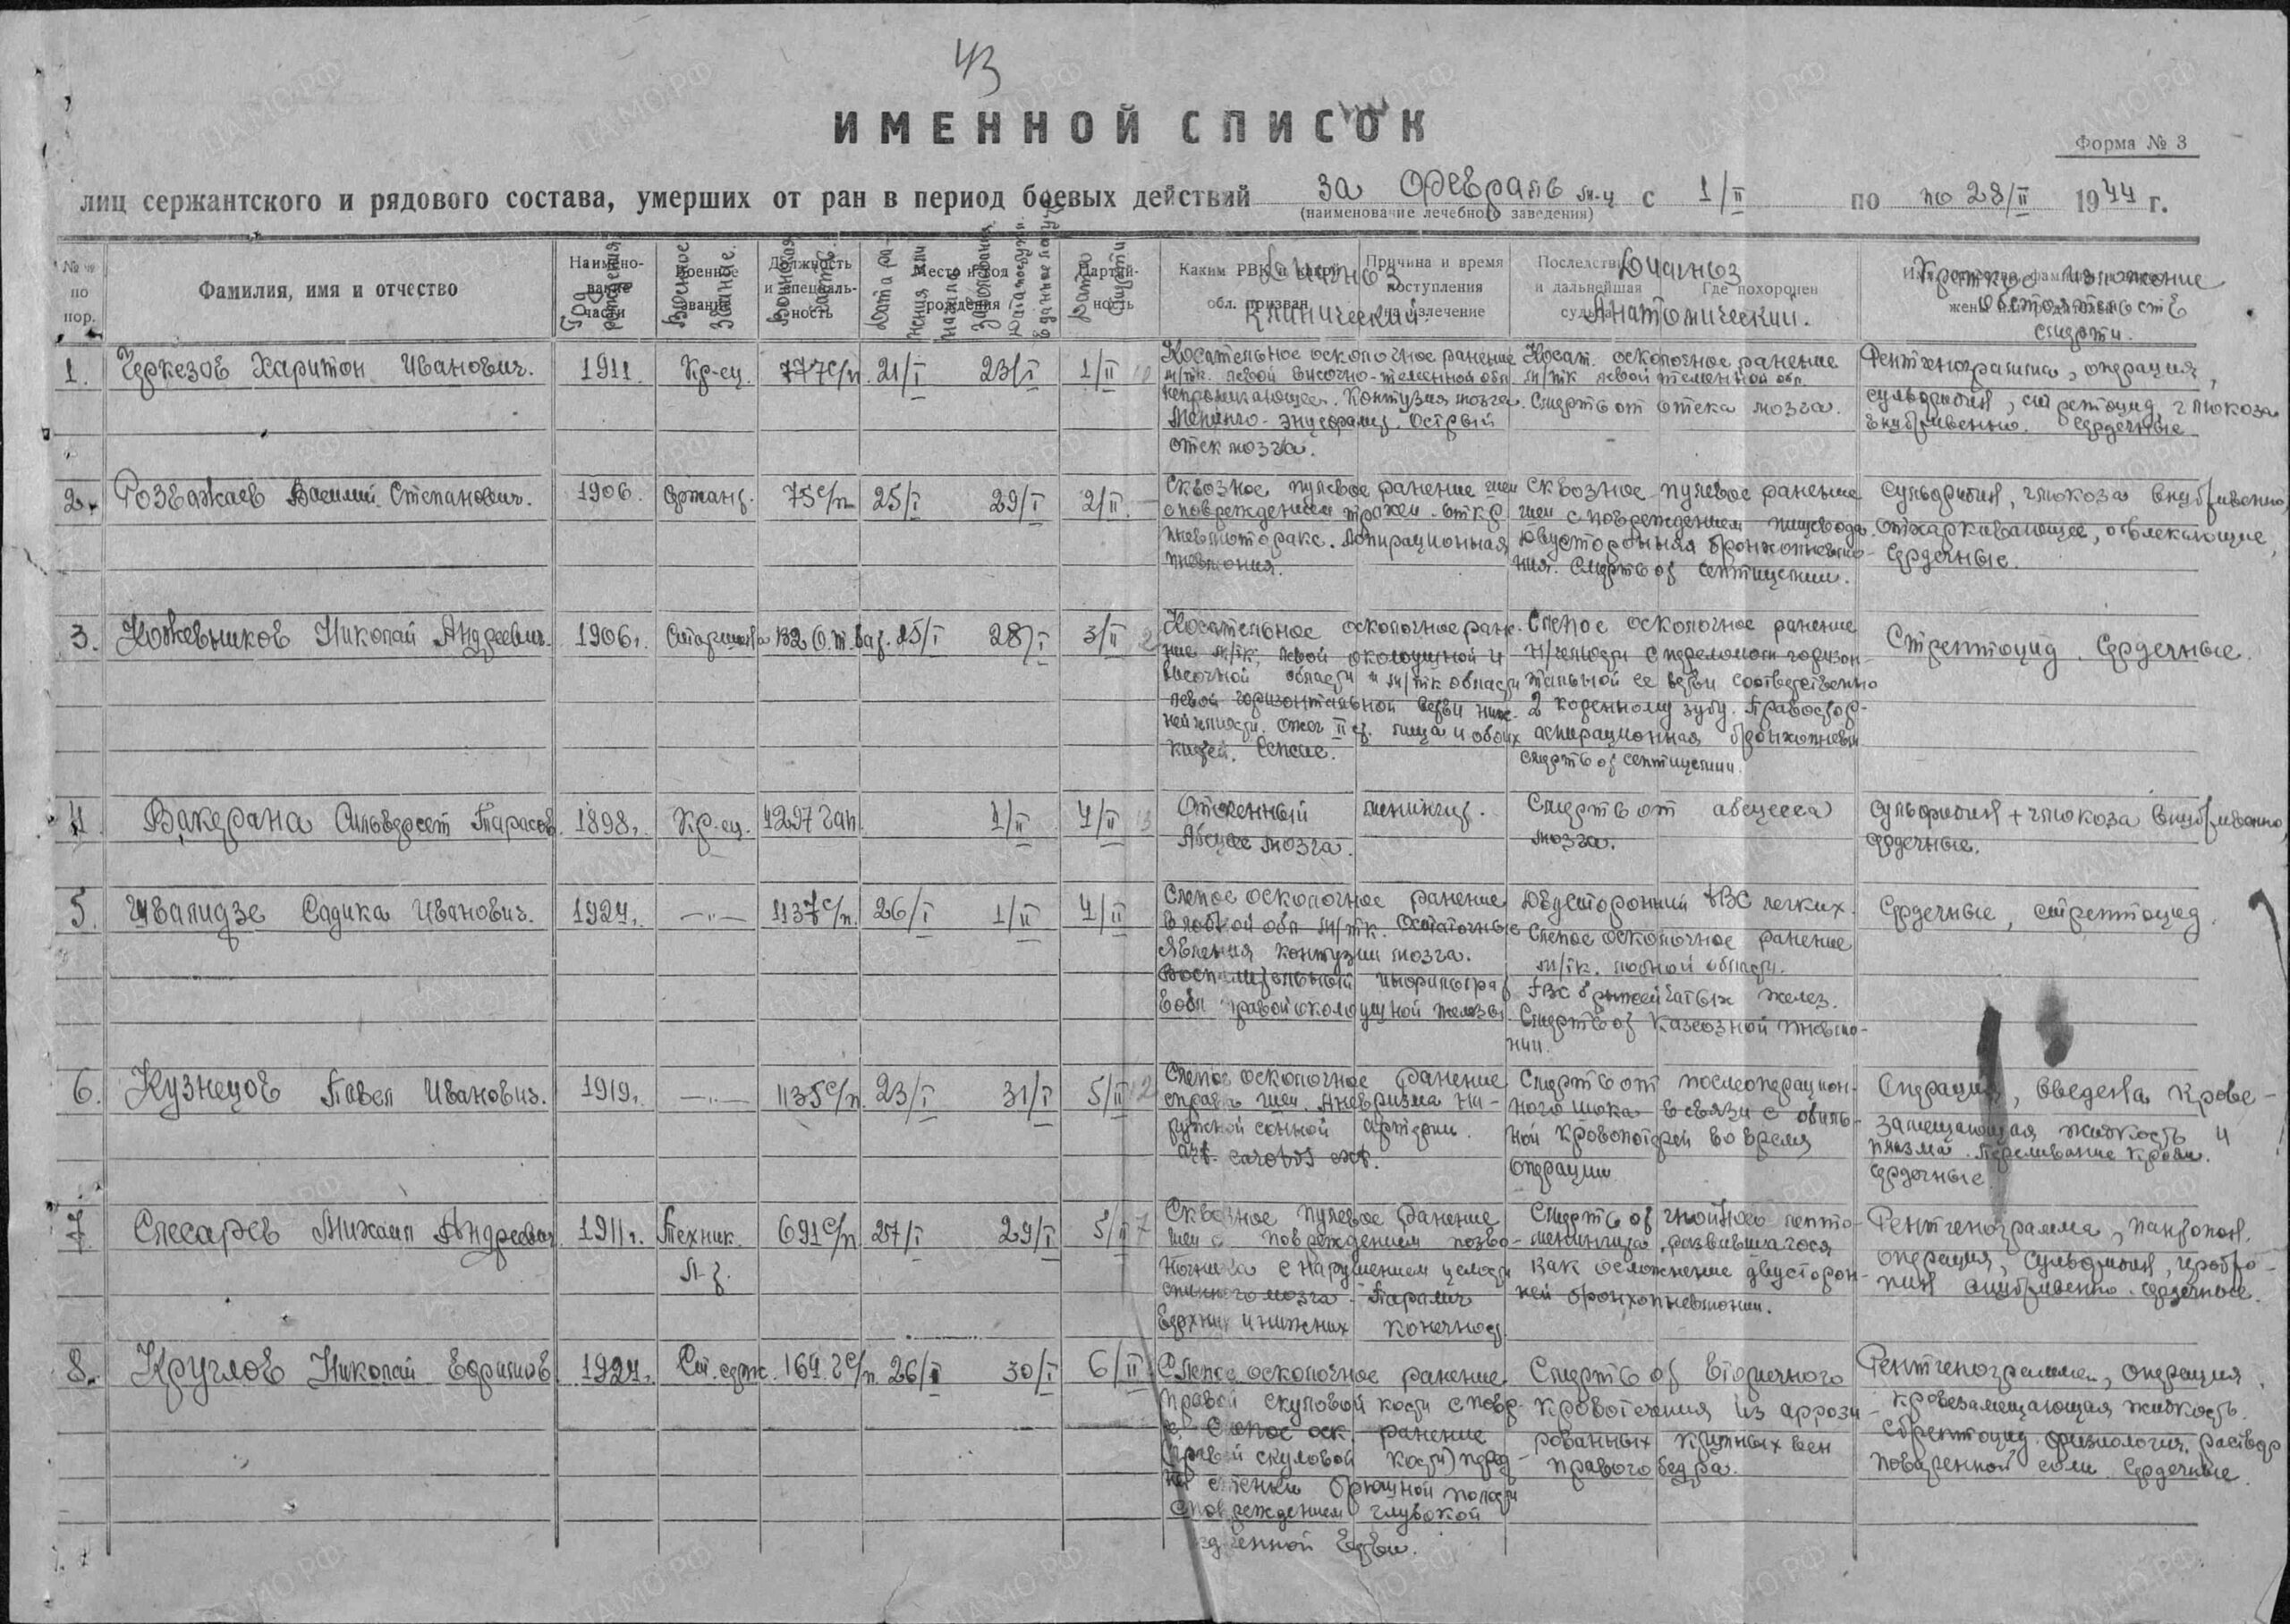 43
ИМЕННОЙ СПИСОК
Форма № 3
лиц сержантского и рядового состава, умерших от ран в период боевых действий за Февраль м-ц с 1/II по по 28/II 1944 г.
(наименование лечебного заведения)
№№ по пор.
Фамилия, имя и отчество
Наименование части
Год рождения
Военное звание
Военное звание.
Должность и специальность
Войсковая часть.
Место и год рождения
Дата ранения или начала заболевания.
Партийность
Дата смерти
Каким РВК и какой обл. призван
Причина и время поступления на излечение
Диагноз Клинический.
Последствия и дальнейшая судьба
Где похоронен
Диагноз Анатомический.
Краткое изложение обстоятельств смерти.
1. Черкезов Харитон Иванович. 1911 Кр-ец. 777 с/п 21/I 23/I 1/II
Касательное осколочное ранение
м/тк. левой височно-теменной обл
непроникающее. Контузия мозга.
Менинго-энцефалит. Острый
отек мозга.
Касат. осколочное ранение
м/тк левой теменной обл.
Смерть от отека мозга.
Рентгенограмма, операция,
сульфидин, стрептоцид, глюкоза
внутривенно. Сердечные
2. Розважаев Василий Степанович. 1906. Сержант. 75 с/п 25/I 29/I 2/II.
Сквозное пулевое ранение шеи
с повреждением трахеи. откр
пневмоторакс. Аспирационная
пневмония.
Сквозное пулевое ранение
шеи с повреждением пищевода.
Двусторонняя бронхопневмо-
ния. Смерть от септицемии.
Сульфидин, глюкоза внутривенно,
отхаркивающее, отвлекающие,
Сердечные.
3. Кожевников Николай Андреевич. 1906г. Старшина 132 О.т.бат. 25/I 28/I 3/II
Касательное осколочное ране-
ние м/тк. левой околоушной и
височной области и м/тк области
левой горизонтальной ветви ниж-
ней челюсти. ожог II ст. лица и обоих
кистей. Сепсис.
Слепое осколочное ранение
н/челюсти с переломом горизон-
тальной ее ветви соответственно
2 коренному зубу. Правостор-
аспирационная бронхопневм
смерть от септицемии.
Стрептоцид. Сердечные.
4. Вакерана Сильверст Тарасов. 1898г. Кр-ец. 1297 1/II 4/II
Отогенный менингит.
Абсцес мозга.
Смерть от абсцесса
мозга.
Сульфидин + глюкоза внутривенно,
сердечные.
5. Швалидзе Садика Иванович. 1924г. —"— 1137 с/п. 26/I 1/II 4/II
Слепое осколочное ранение
в лобной обл м/тк. Остаточные
явления контузии мозга.
Воспалительный инфильтрат
в обл правой околоушной железы
Двусторонний ТВС легких.
Слепое осколочное ранение
м/тк. лобной области.
ТВС брыжейчатых желез.
Смерть от казеозной пневмо-
нии.
Сердечные, стрептоцид.
6. Кузнецов Павел Иванович. 1919г. —"— 1135 с/п. 23/I 31/I 5/II
Слепое осколочное ранение
справа шеи. Аневризма на-
ружной сонной артерии.
art. carotis ext.
Смерть от послеоперацион-
ного шока в связи с обиль-
ной кровопотерей во время
операции
Операция, введена крове-
замещающая жидкость и
плазма. Переливание крови.
сердечные.
7. Слесарев Михаил Андреевич 1911г. Техник. Л-т. 691 с/п 27/I 29/I 5/II
Сквозное пулевое ранение
шеи с повреждением позво-
ночника с нарушением целости
спинного мозга. Паралич
верхних и нижних конечност
Смерть от гнойного лепто-
менингита, развившегося
как осложнение двусторон-
ней бронхопневмонии.
Рентгенограмма, пантопон.
операция, сульфидин, уротро-
пин внутривенно. Сердечные.
8. Круглов Николай Ефимов 1924г. Ст. серж. 164 г с/п. 26/I 30/I 6/II
Слепое осколочное ранение
правой скуловой кости с повр-
Слепое оск. ранение
(правой скуловой кости) перед-
ней стенки брюшной полости
с повреждением глубокой
бедренной вены.
Смерть от вторичного
кровотечения из аррози-
рованных крупных вен
правого бедра.
Рентгенограмма, операция,
кровезамещающая жидкость.
стрептоцид физиологич. раствор
поваренной соли. Сердечные.